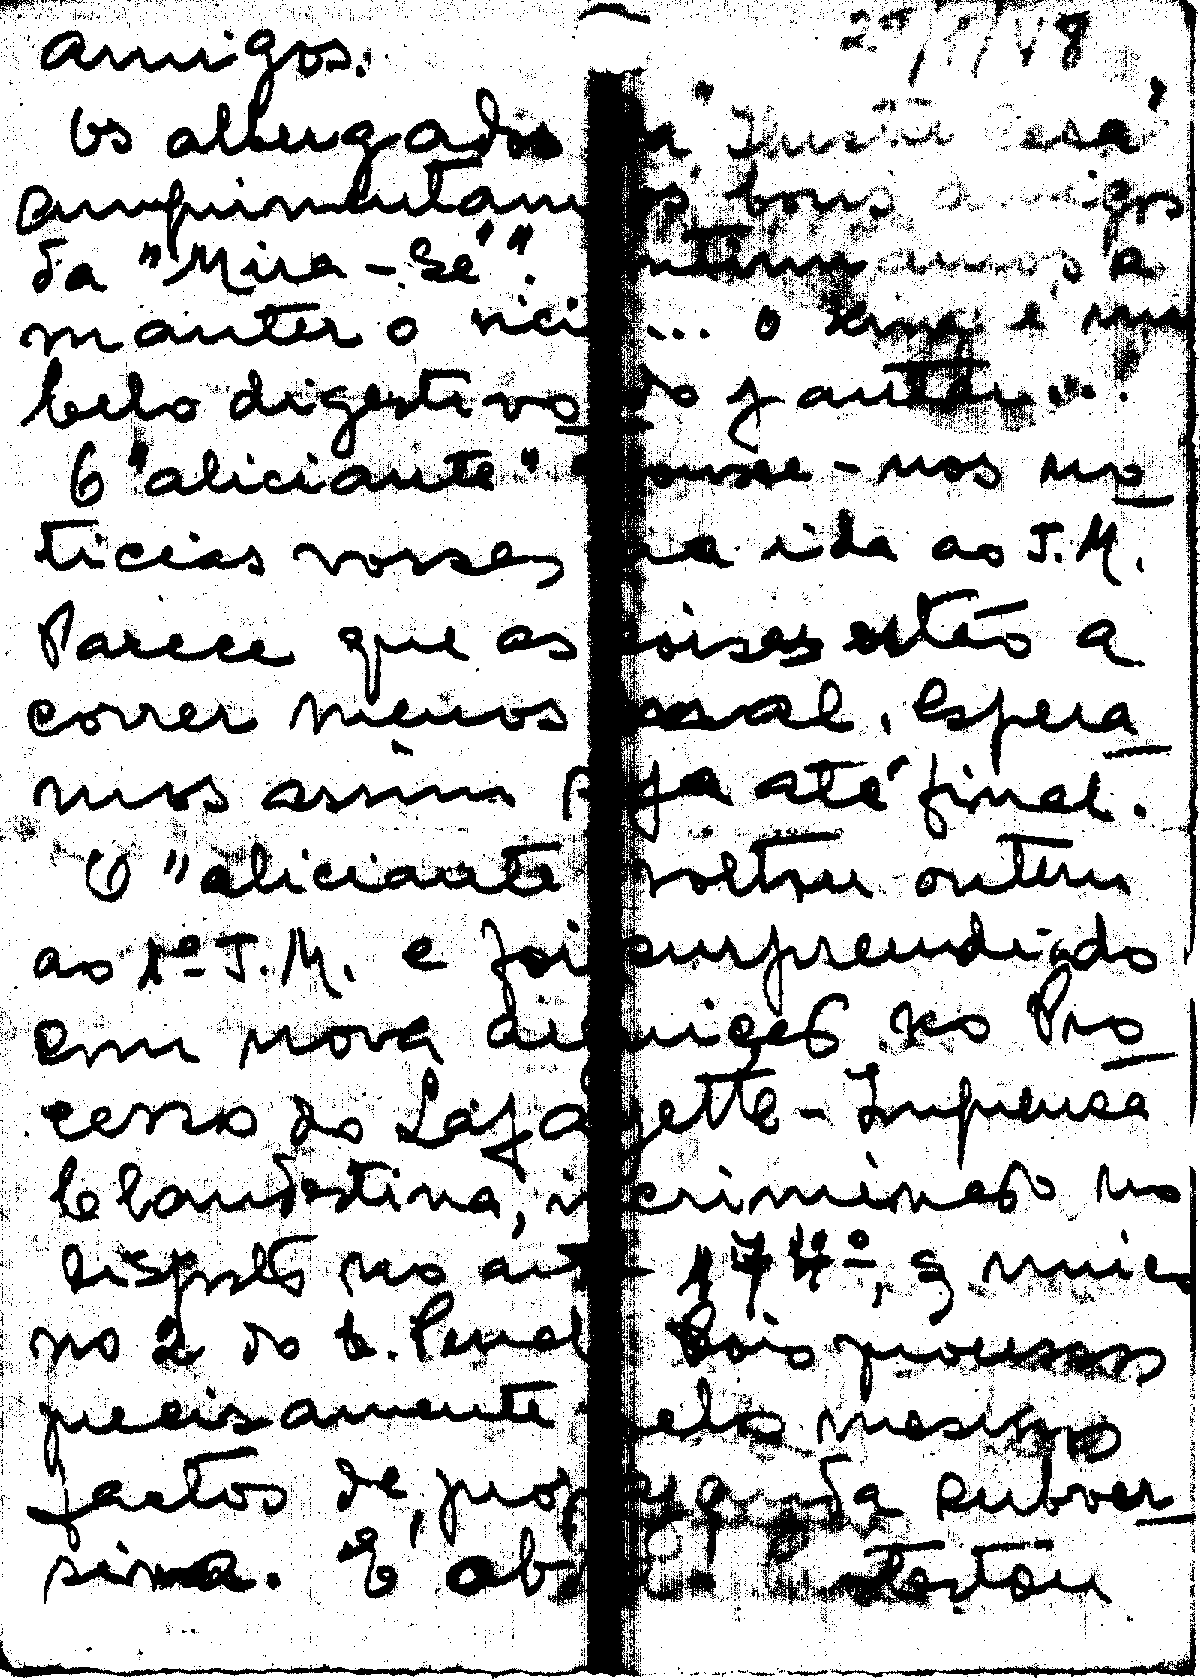 29/1/48
amigos:
Os albergados da "Triste Casa"
cumprimentam os bons amigos
da "Mira-Sé". Continuamos a
manter o vício... o king é um
belo digestivo do jantar...!
O "aliciante" trouxe-nos no
tícias vossas na ida ao T.M.
Parece que as coisas estão a
correr menos mal. Espera
mos assim seja até final.
O "aliciante" voltou ontem
ao 1º T.M. e foi surpreendido
em nova acusação no Pro
cesso do Lafayette - Imprensa
Clandestina, incriminado no
disposto no artº 174º, § único
nº 2 do C. Penal. Dois processos
precisamente pelos mesmos
factos de propaganda subver
siva. É Contestou